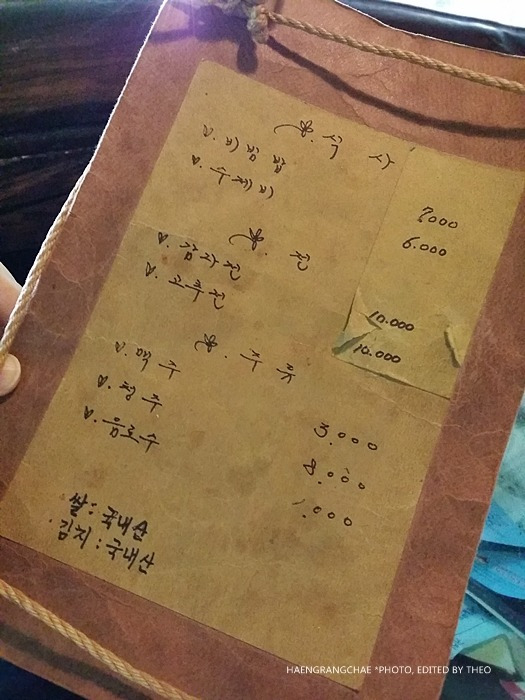 식사
비빔밥 7000
수제비 6.000
전
감자전 10.000
고추전 10.000
주류
맥주 3.000
청주 8.000
음료수 1.000
쌀: 국내산
김치: 국내산
HAENGRANGCHAE *PHOTO, EDITED BY THEO